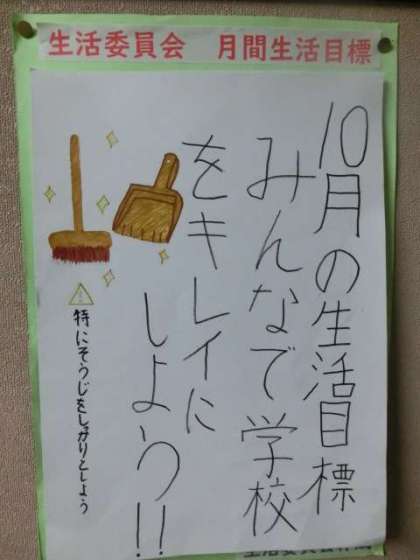 生活委員会　月間生活目標
10月の生活目標
みんなで学校
をキレイに
しよう!!
特にそうじをしっかりとしよう